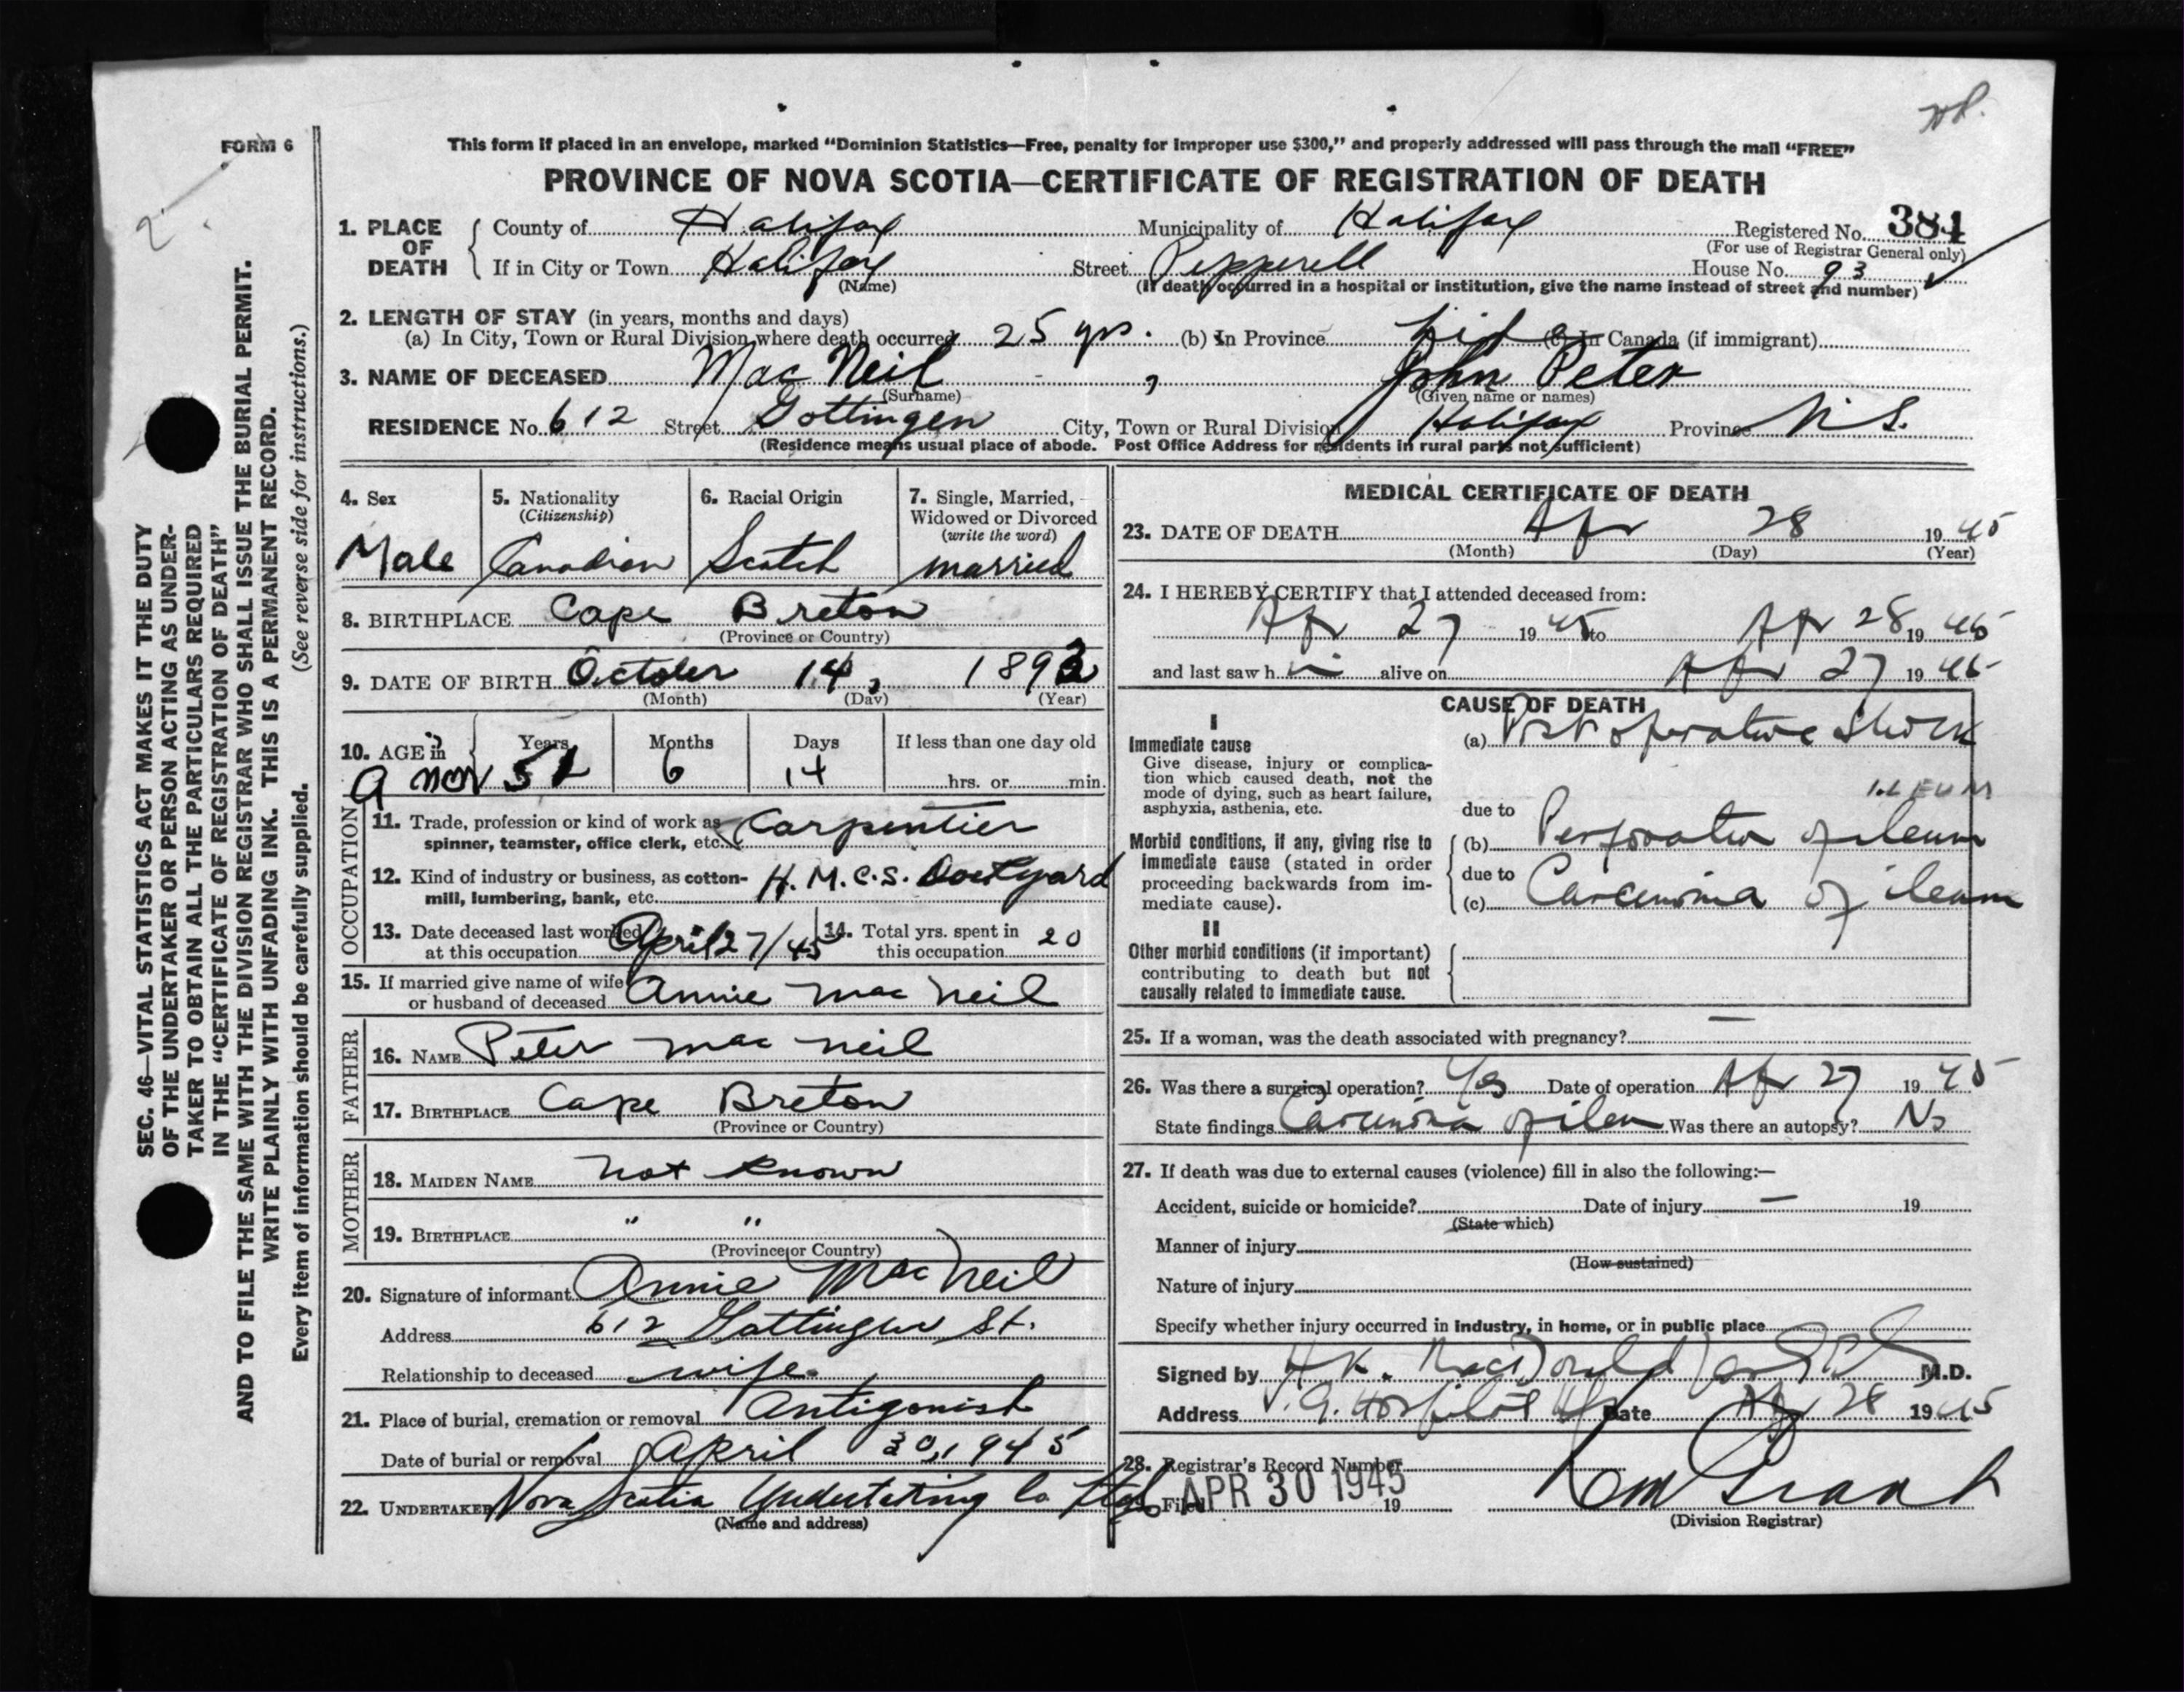 FORM 6
This form if placed in an envelope, marked “Dominion Statistics—Free, penalty for improper use $300,” and properly addressed will pass through the mail “FREE”
PROVINCE OF NOVA SCOTIA—CERTIFICATE OF REGISTRATION OF DEATH
1. PLACE OF DEATH County of Halifax Municipality of Halifax Registered No. 384
(For use of Registrar General only)
If in City or Town Halifax Street Pepperell House No. 93
(Name) (If death occurred in a hospital or institution, give the name instead of street and number)
2. LENGTH OF STAY (in years, months and days)
(a) In City, Town or Rural Division where death occurred 25 yrs. (b) In Province Life (c) In Canada (if immigrant)
3. NAME OF DECEASED Mac Neil , John Peter
(Surname) (Given name or names)
RESIDENCE No. 612 Street Gottingen City, Town or Rural Division Halifax Province N.S.
(Residence means usual place of abode. Post Office Address for residents in rural parts not sufficient)
4. Sex
Male
5. Nationality
(Citizenship)
Canadian
6. Racial Origin
Scotch
7. Single, Married,
Widowed or Divorced
(write the word)
married
8. BIRTHPLACE Cape Breton
(Province or Country)
9. DATE OF BIRTH October 14, 1893
(Month) (Day) (Year)
10. AGE in Years Months Days If less than one day old
51 6 14 hrs. or min.
OCCUPATION
11. Trade, profession or kind of work as Carpentier
spinner, teamster, office clerk, etc.
12. Kind of industry or business, as cotton- H.M.C.S. Dockyard
mill, lumbering, bank, etc.
13. Date deceased last worked at this occupation April 27/45
14. Total yrs. spent in this occupation 20
15. If married give name of wife
or husband of deceased Annie Mac Neil
FATHER
16. NAME Peter Mac Neil
17. BIRTHPLACE Cape Breton
(Province or Country)
MOTHER
18. MAIDEN NAME not known
19. BIRTHPLACE " "
(Province or Country)
20. Signature of informant Annie MacNeil
Address 612 Gottingen St.
Relationship to deceased wife.
21. Place of burial, cremation or removal Antigonish
Date of burial or removal April 30, 1945
22. UNDERTAKER Nova Scotia Undertaking Co Hfx
(Name and address)
MEDICAL CERTIFICATE OF DEATH
23. DATE OF DEATH Apr 28 1945
(Month) (Day) (Year)
24. I HEREBY CERTIFY that I attended deceased from:
Apr 27 1945 to Apr 28 1945
and last saw h im alive on Apr 27 1945
CAUSE OF DEATH
I
Immediate cause
Give disease, injury or complica-
tion which caused death, not the
mode of dying, such as heart failure,
asphyxia, asthenia, etc.
(a) Post operative Shock
ILEUM
due to
Morbid conditions, if any, giving rise to
immediate cause (stated in order
proceeding backwards from im-
mediate cause).
(b) Perforation of ileum
due to
(c) Carcinoma of ileum
II
Other morbid conditions (if important)
contributing to death but not
causally related to immediate cause.
25. If a woman, was the death associated with pregnancy? —
26. Was there a surgical operation? Yes Date of operation Apr 27 1945
State findings Carcinoma of ileum Was there an autopsy? No
27. If death was due to external causes (violence) fill in also the following:—
Accident, suicide or homicide? Date of injury — 19
(State which)
Manner of injury
(How sustained)
Nature of injury
Specify whether injury occurred in industry, in home, or in public place
Signed by H.K. MacDonald M.D.
Address V.G. Hospital Hfx Date Apr 28 1945
28. Registrar's Record Number
Filed APR 30 1945 19
(Division Registrar)
SEC. 46—VITAL STATISTICS ACT MAKES IT THE DUTY
OF THE UNDERTAKER OR PERSON ACTING AS UNDER-
TAKER TO OBTAIN ALL THE PARTICULARS REQUIRED
IN THE “CERTIFICATE OF REGISTRATION OF DEATH”
AND TO FILE THE SAME WITH THE DIVISION REGISTRAR WHO SHALL ISSUE THE BURIAL PERMIT.
WRITE PLAINLY WITH UNFADING INK. THIS IS A PERMANENT RECORD.
Every item of information should be carefully supplied. (See reverse side for instructions.)